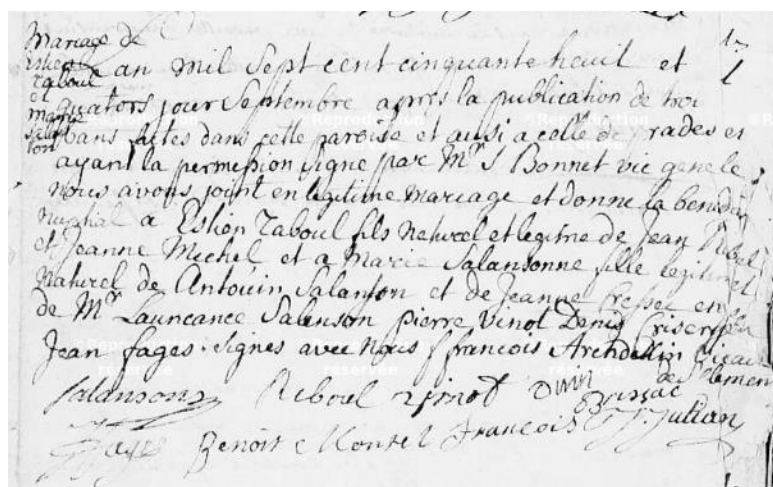 Mariage de
Estion
Raboul
et
marie
Salan
son
17
L
an mil Sept cent cinquante heuil et
quators jour Septembre apres la publication de troi
bans faites dans cette paroise et aussi a celle de prades et
ayant la permession signe par Mr S Bonnet vic gene le
nous avons joint en legitime mariage et donne la benedon
nuptial a Estion Raboul fils naturel et legitime de Jean Ribel
et Jeanne Michel et a Marie Salansonne fille legitime et
naturel de Antouin Salanson et de Jeanne Cresset en
de Mr Launcance Salenson pierre Vinot Denis
Jean fages signes avec nous francois
Salansons Reboul Vinot Brissac
fages Benoit francois J. Julian